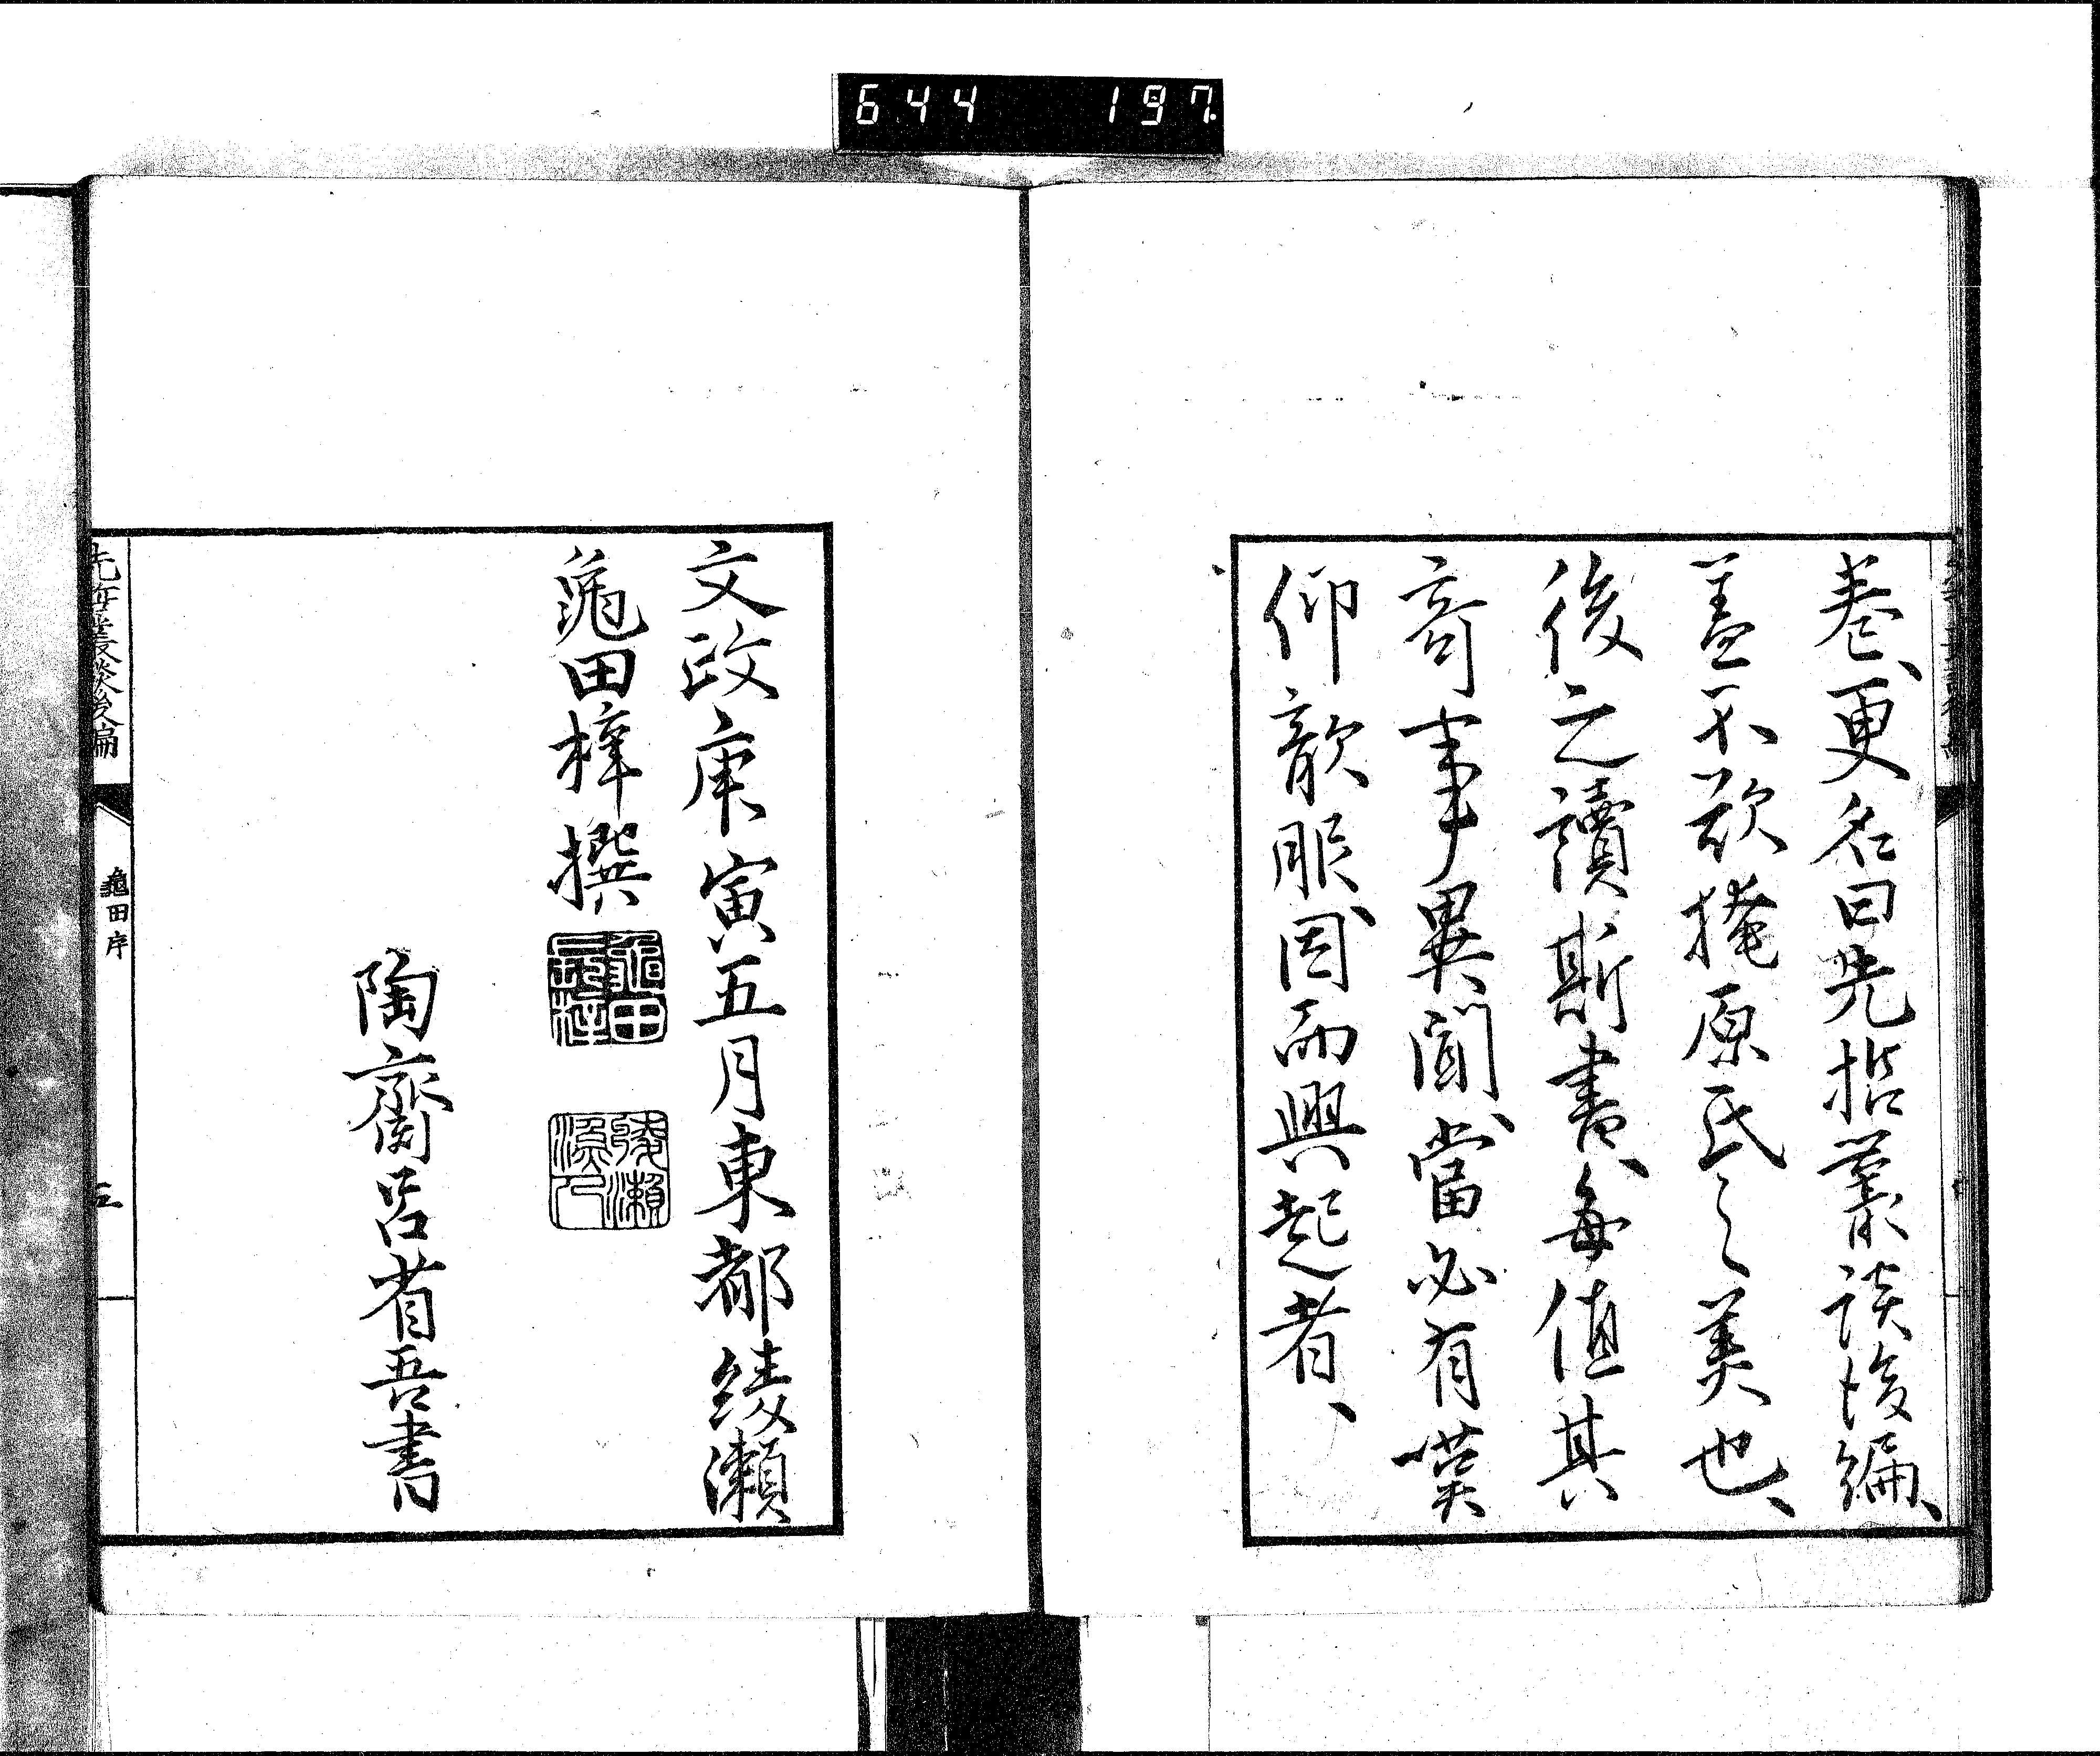 644 197
卷、更名曰先哲叢談後編、
蓋不欲掩原氏之美也、
後之讀斯書、每值其
奇事異聞、當必有嘆
仰歆服、因而興起者、
文政庚寅五月東都綾瀨
龜田梓撰
龜田長梓
綾瀨漁人
陶齋呂省吾書
先哲叢談後編
龜田序
五